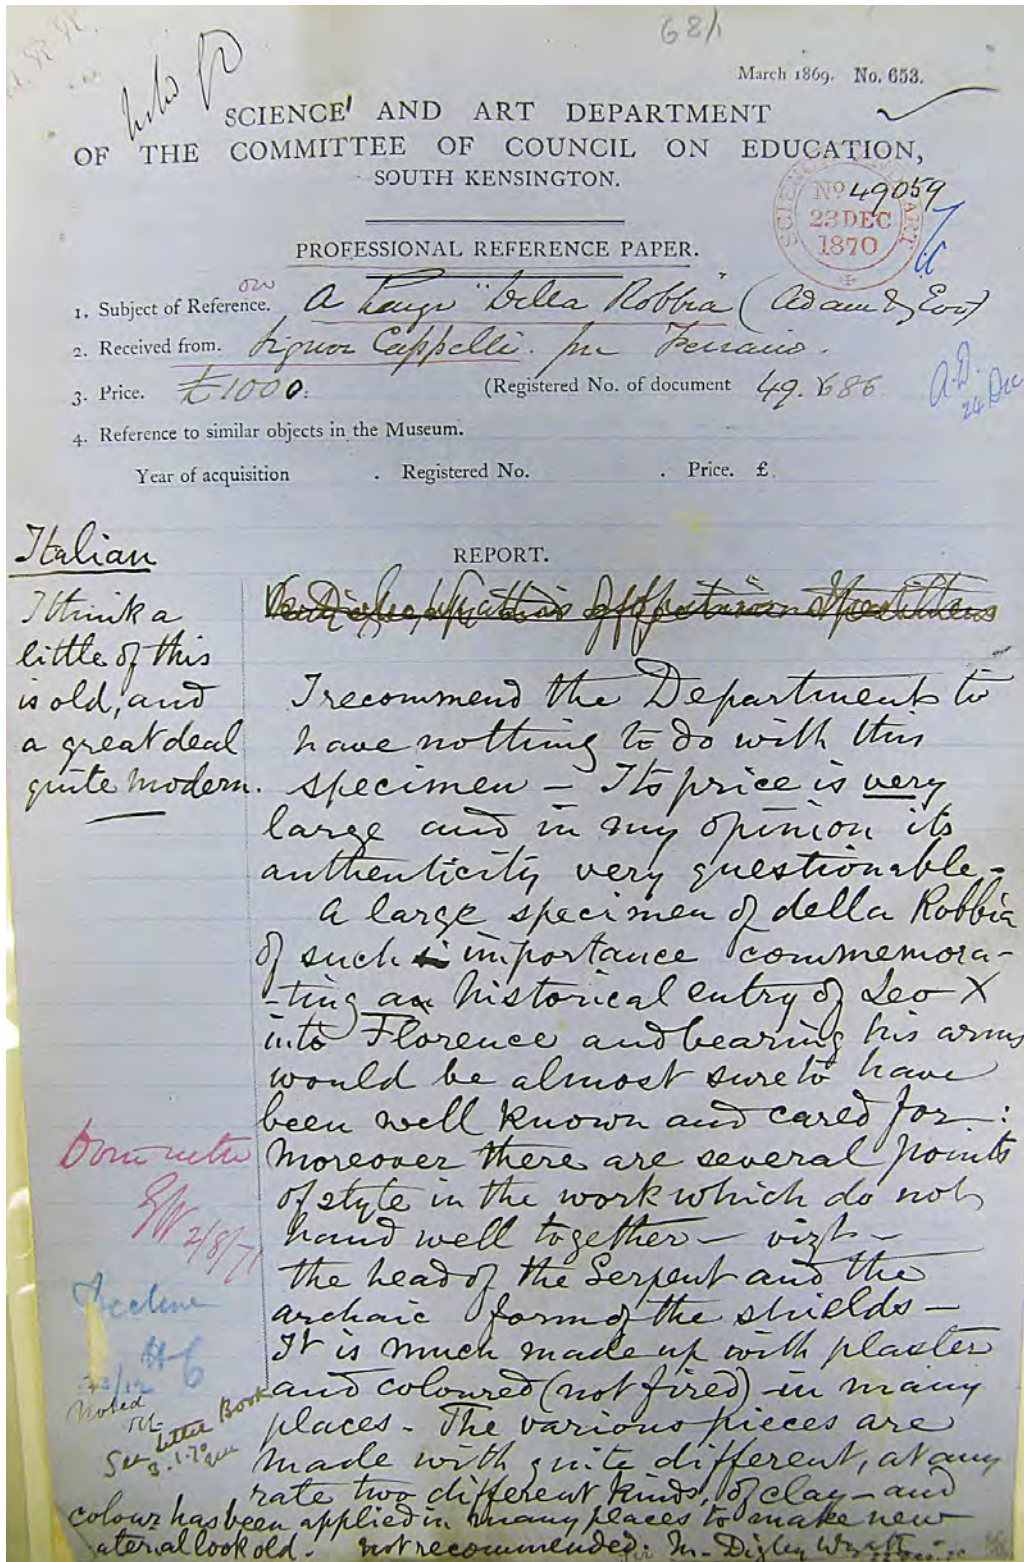 68/1
March 1869. No. 653.
SCIENCE AND ART DEPARTMENT
OF THE COMMITTEE OF COUNCIL ON EDUCATION,
SOUTH KENSINGTON.
No 49059
23 DEC
1870
PROFESSIONAL REFERENCE PAPER.
on
1. Subject of Reference. A large "Della Robbia" (Adam & Eve)
2. Received from. Signor Cappelli. per
3. Price. £1000. (Registered No. of document 49.686
A.D.
24 Dec
4. Reference to similar objects in the Museum.
Year of acquisition . Registered No. . Price. £
Italian
REPORT.
I think a
little of this
is old, and
a great deal
quite modern.
I recommend the Department to
have nothing to do with this
specimen — Its price is very
large and in my opinion its
authenticity very questionable —
A large specimen of della Robbia
of such importance commemora-
-ting an historical entry of Leo X
into Florence and bearing his arms
would be almost sure to have
been well known and cared for :
Moreover there are several points
of style in the work which do not
hand well together — vizt —
the head of the Serpent and the
archaic form of the shields —
It is much made up with plaster
and coloured (not fired) in many
places - The various pieces are
made with quite different, at any
rate two different kinds, of clay — and
colour has been applied in many places to make new
aterial look old. not recommended. M. Digby Wyatt
2/8/71
Decline
HC
Noted
See Letter Book
3.1.70